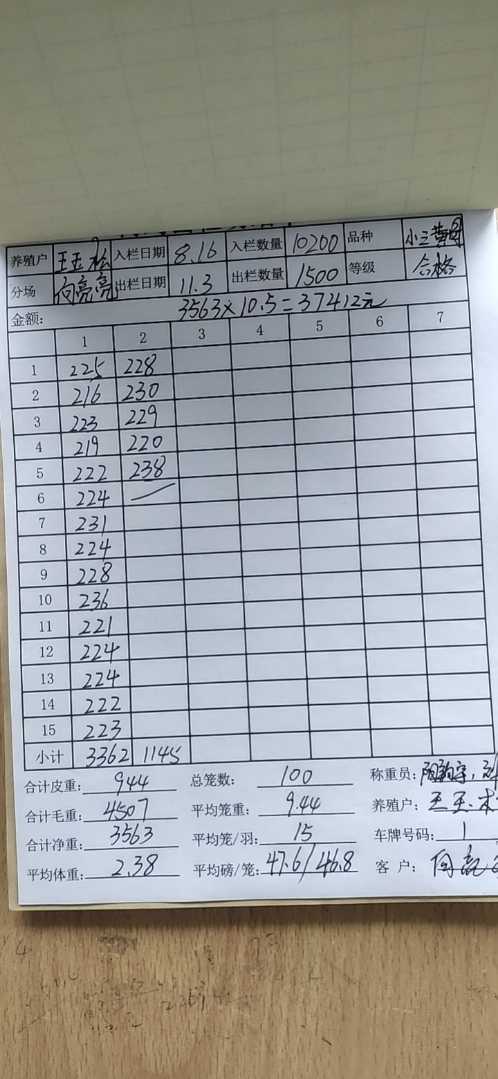 养殖户 王玉松 入栏日期 8.16 入栏数量 10200 品种 小三黄
分场 向亮亮 出栏日期 11.3 出栏数量 1500 等级 合格
金额: 3563×10.5=37412元
1 2 3 4 5 6 7
1 225 228
2 216 230
3 223 229
4 219 220
5 222 238
6 224
7 231
8 224
9 228
10 236
11 221
12 224
13 224
14 222
15 223
小计 3362 1145
合计皮重: 944 总笼数: 100 称重员:
合计毛重: 4507 平均笼重: 9.44 养殖户: 王玉
合计净重: 3563 平均笼/羽: 15 车牌号码: 1
平均体重: 2.38 平均磅/笼: 47.6/46.8 客户: 向亮